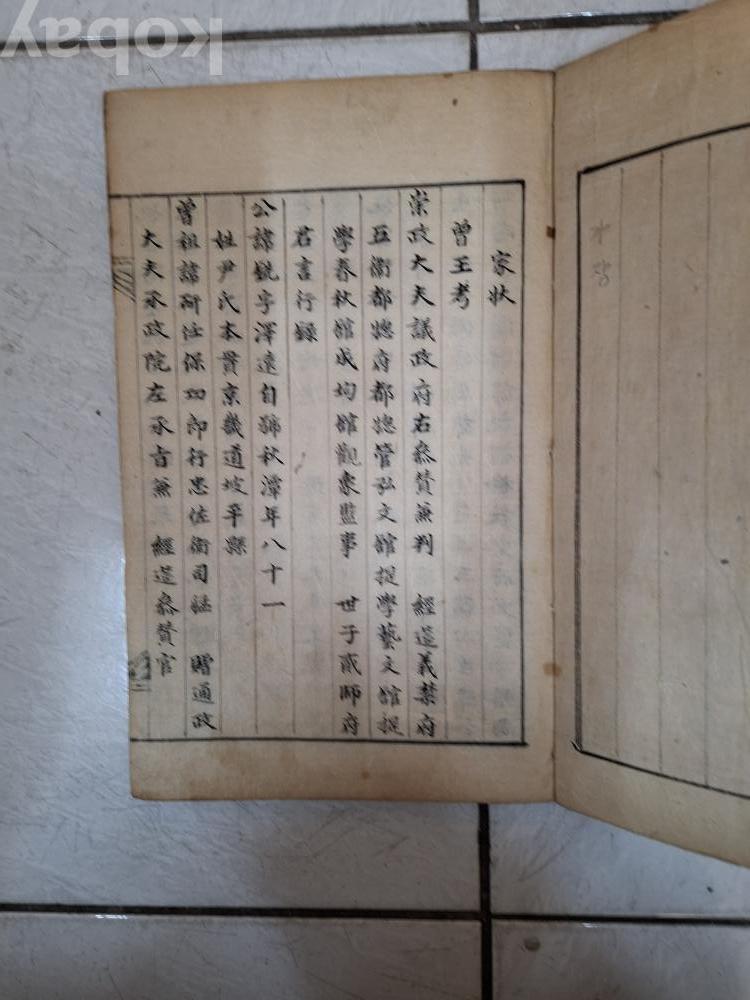 kobay
家狀
曾王考
崇政大夫議政府右參贊兼判 經筵義禁府
五衛都摠府都摠管弘文館提學藝文館提
學春秋館成均館觀象監事 世子貳師府
君言行錄
公諱銑字澤遠自號秋潭年八十一
姓尹氏本貫京畿道坡平縣
曾祖諱硏仕保功郎行忠佐衛司猛 贈通政
大夫承政院左承旨兼 經筵參贊官